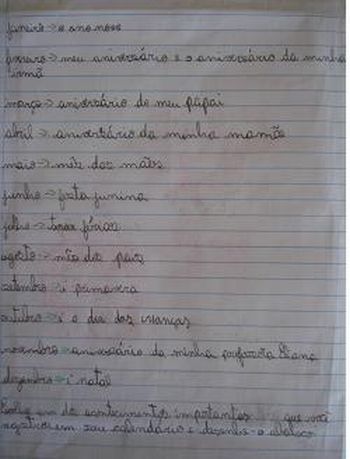 janeiro → o ano novo
fevereiro → meu aniversário e o aniversário da minha
irmã
março → aniversário do meu papai
abril → aniversário da minha mamãe
maio → mês das mães
junho → festa junina
julho → férias
agosto → mês dos pais
setembro → é primavera
outubro → é o dia das crianças
novembro → aniversário da minha professora
dezembro → é natal
um dos acontecimentos importantes que você
registrou em seu calendário e desenhe-o abaixo